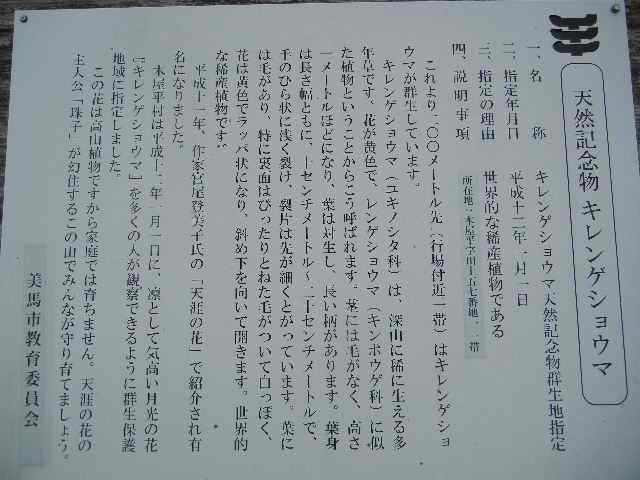 天然記念物 キレンゲショウマ
一、名　　称　　キレンゲショウマ天然記念物群生地指定
二、指定年月日　平成十二年一月一日
三、指定の理由　世界的な稀産植物である
四、説明事項
所在地・木屋平字川上
これより一〇〇メートル先（行場付近一帯）はキレンゲショ
ウマが群生しています。
キレンゲショウマ（ユキノシタ科）は、深山に稀に生える多
年草です。花が黄色で、レンゲショウマ（キンポウゲ科）に似
た植物ということからこう呼ばれます。茎には毛がなく、高さ
一メートルほどになり、葉は対生し、長い柄があります。葉身
は長さ幅ともに、十センチメートル〜二十センチメートルで、
手のひら状に浅く裂け、裂片は先が細くとがっています。葉に
は毛があり、特に裏面はぴったりとねた毛がついて白っぽく、
花は黄色でラッパ状になり、斜め下を向いて開きます。世界的
な稀産植物です。
平成十一年、作家宮尾登美子氏の「天涯の花」で紹介され有
名になりました。
木屋平村は平成十二年一月一日に、凛として気高い月光の花
『キレンゲショウマ』を多くの人が観察できるように群生保護
地域に指定しました。
この花は高山植物ですから家庭では育ちません。天涯の花の
主人公「珠子」が幻住するこの山でみんなが守り育てましょう。
美馬市教育委員会